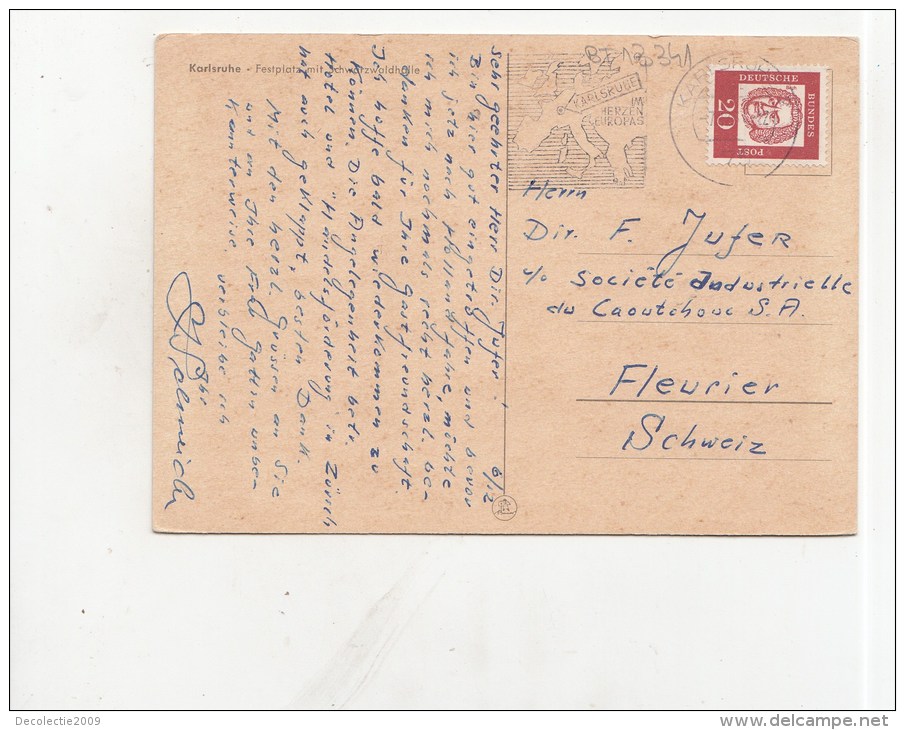 Karlsruhe - Festplatz mit Schwarzwaldhalle
BI 13 341
KARLSRUHE
IM
HERZEN
EUROPAS
KARLSRUHE
DEUTSCHE
BUNDES
POST
20
6/12
Sehr geehrter Herr Dir. Jufer!
Bin hier gut eingetroffen und bevor
ich jetz nach Holland fahre, möchte
ich mich nochmals recht herzl. be-
danken für Ihre Gastfreundschaft.
Ich hoffe bald wiederkommen zu
können. Die Angelegenheit betr.
Hotel und "Handelsförderung in Zürich
hat auch geklappt, besten Dank.
Mit den herzl. Grüssen an Sie
und an Ihre Gattin unber-
kannterweise verbleibe ich
Ihr
Herrn
Dir. F. Jufer
c/o Société Industrielle
du Caoutchouc S.A.
Fleurier
Schweiz
Decolectie2009
www.delcampe.net